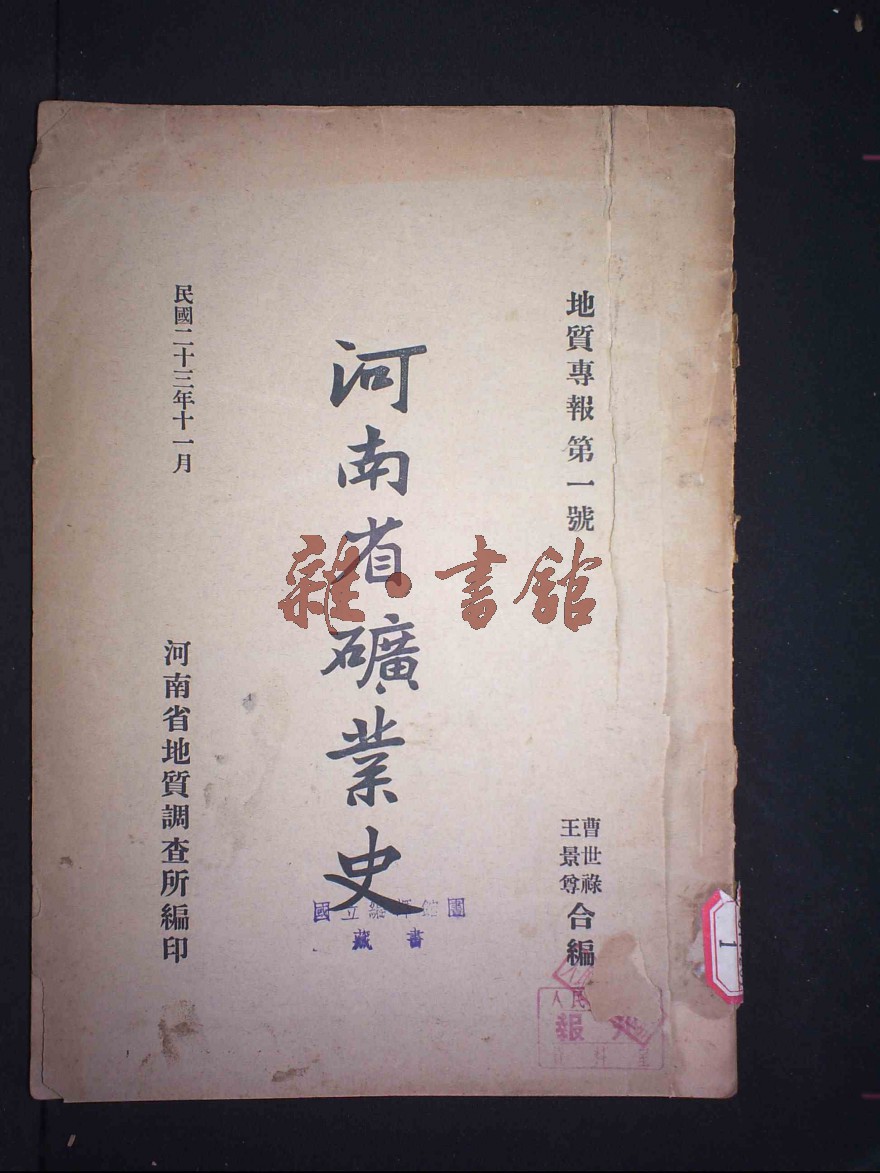 地質專報第一號
曹世祿
王景尊
合編
河南省礦業史
民國二十三年十一月
河南省地質調查所編印
雜·書館
國立編譯館圖
藏書
人民
報
1